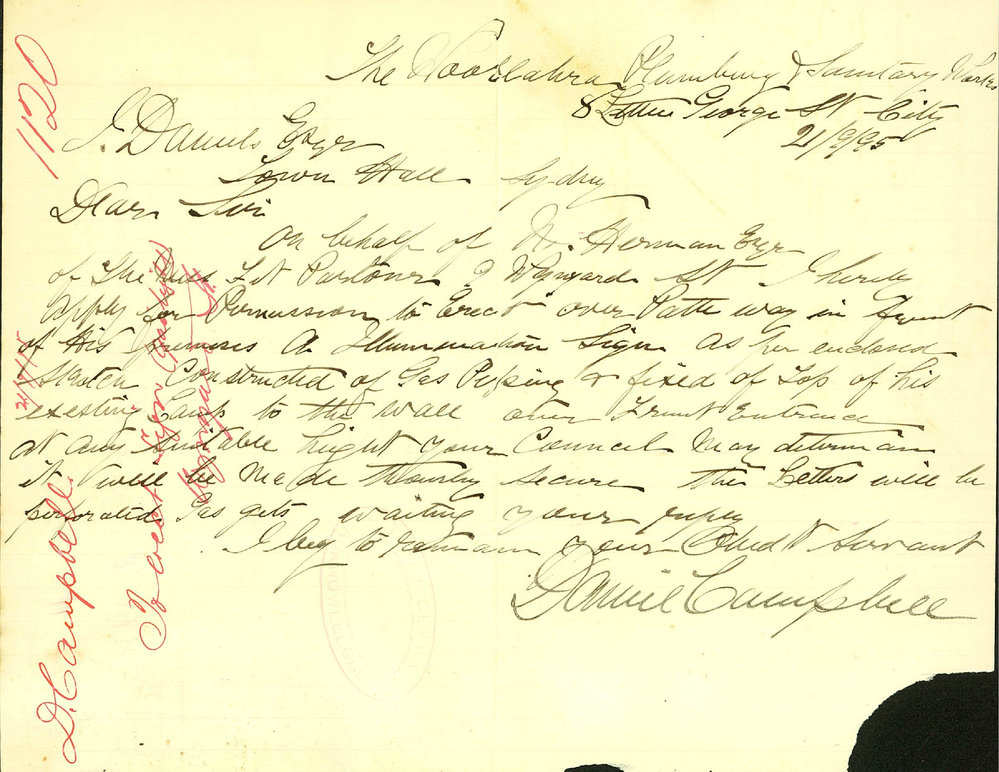 The Woollahra Plumbing & Sanitary Works
8 Little George St City
21/9/95
J. Daniels Esqr
Town Hall Sydney
Dear Sir
On behalf of N. Herman Esqr
of The 3 Wynyard St I hereby
apply for Permission to Erect over Path way in Frount
of His premises A Illummenation Sign as per enclosed
Sketch Constructed of Gas Pipeing & fixed of Top of his
existing Lamp to the wall over Frunt Entrence
at any Suitable hight your Council May determan
it will be Made secure the Letters will be
perforated Gas gets waiting your reply
I beg to remain your Obedt Servant
Daniel Campbell
1120
D. Campbell
21/9/95
To erect sign
Wynyard St